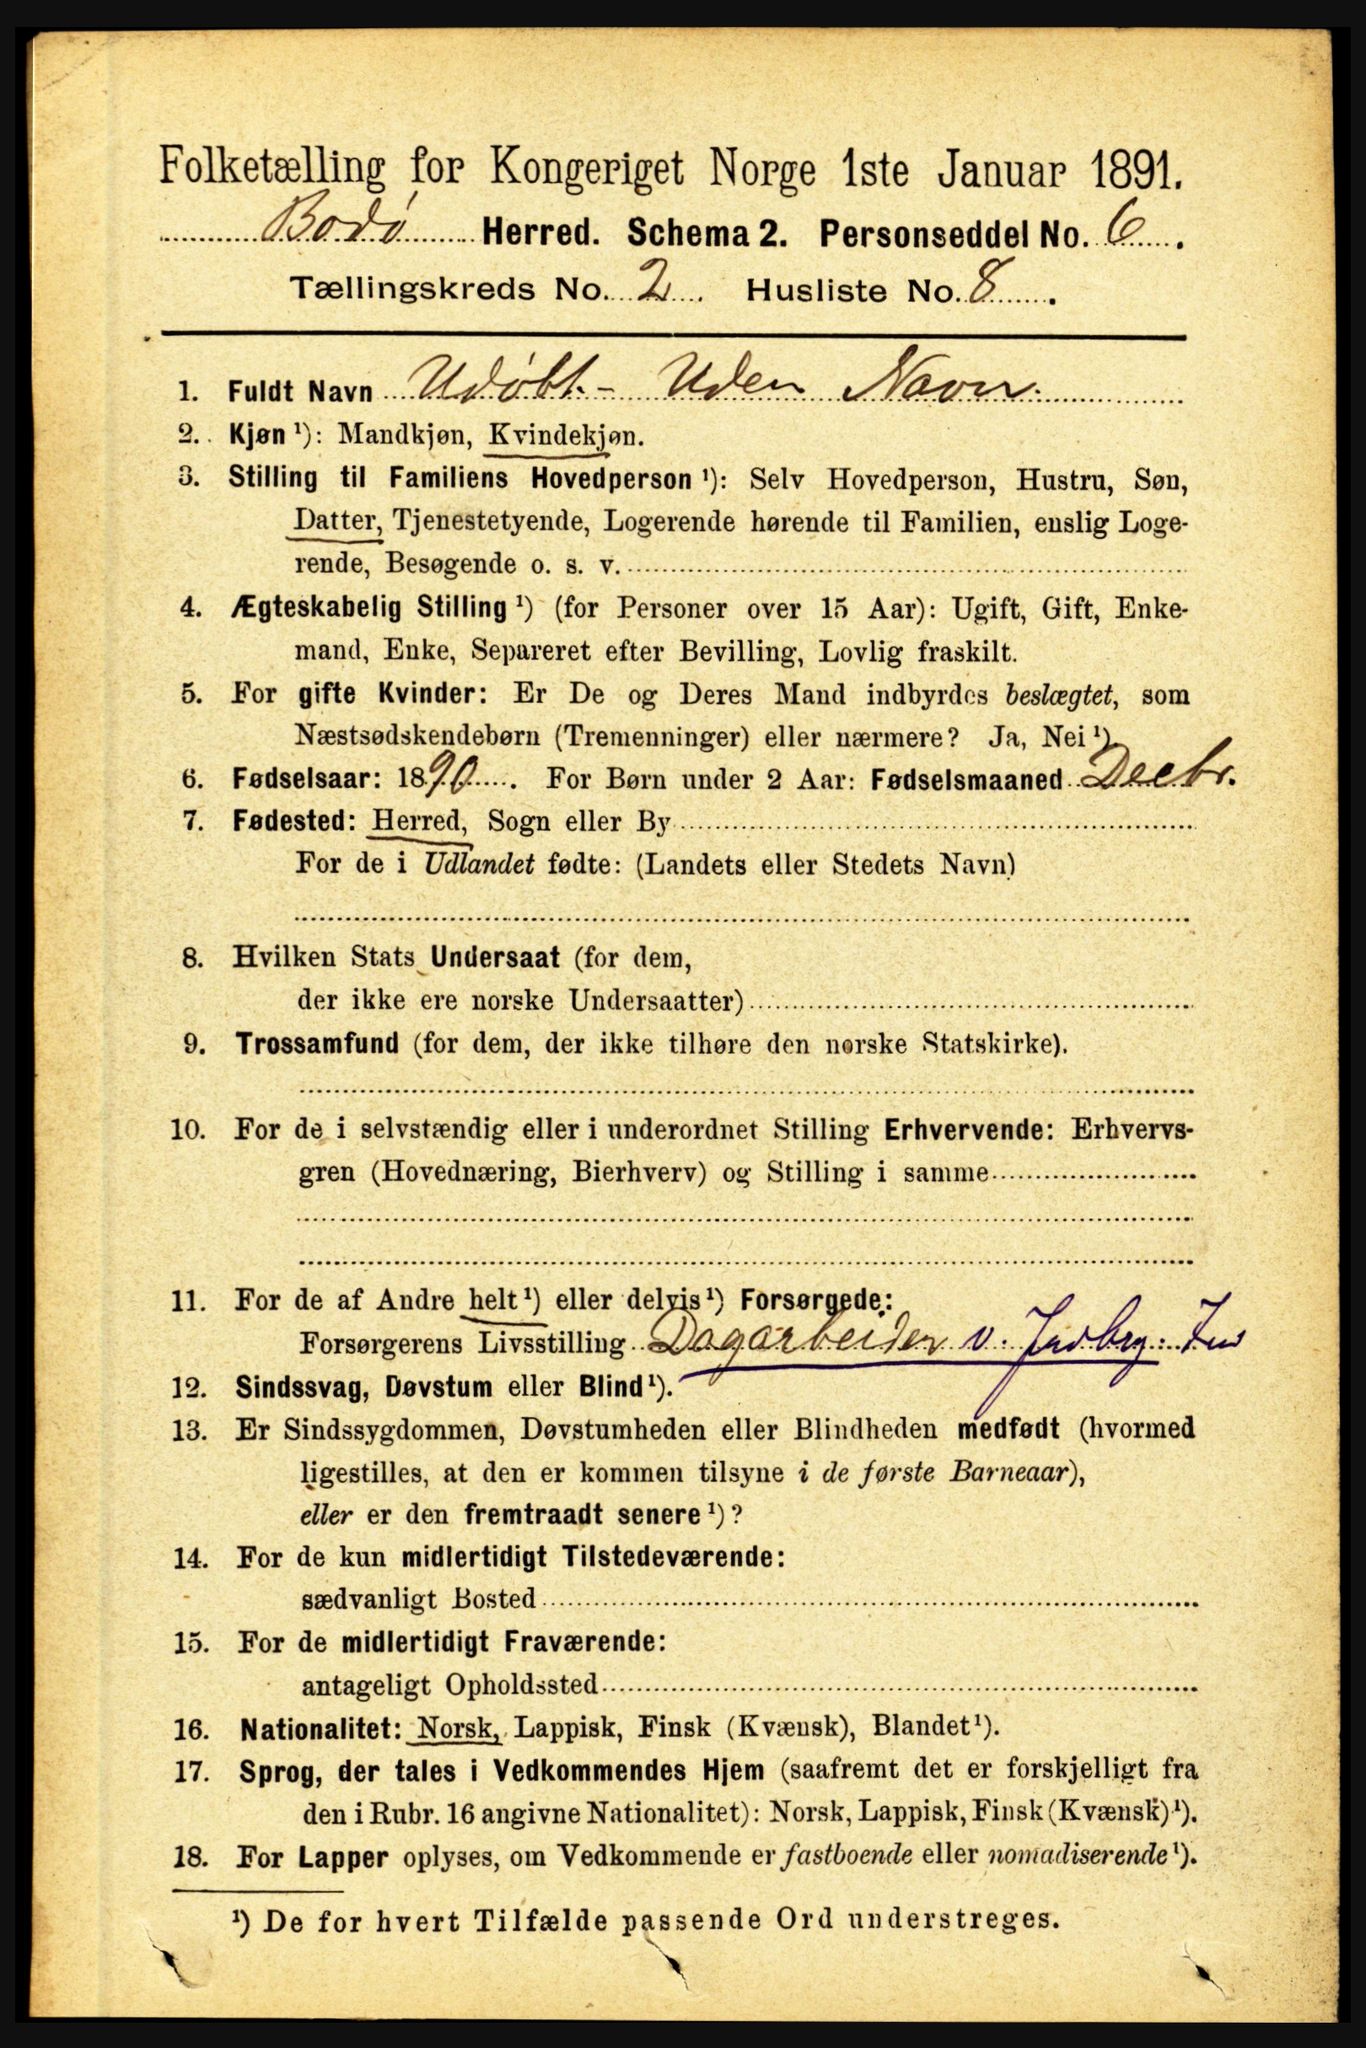 Folketælling for Kongeriget Norge 1ste Januar 1891.
Bodø Herred. Schema 2. Personseddel No. 6.
Tællingskreds No. 2. Husliste No. 8.
1. Fuldt Navn Udøbt - Uden Navn.
2. Kjøn ¹): Mandkjøn, Kvindekjøn.
3. Stilling til Familiens Hovedperson ¹): Selv Hovedperson, Hustru, Søn,
Datter, Tjenestetyende, Logerende hørende til Familien, enslig Loge-
rende, Besøgende o. s. v.
4. Ægteskabelig Stilling ¹) (for Personer over 15 Aar): Ugift, Gift, Enke-
mand, Enke, Separeret efter Bevilling, Lovlig fraskilt.
5. For gifte Kvinder: Er De og Deres Mand indbyrdes beslægtet, som
Næstsødskendebørn (Tremenninger) eller nærmere? Ja, Nei ¹)
6. Fødselsaar: 1890. For Børn under 2 Aar: Fødselsmaaned Decbr.
7. Fødested: Herred, Sogn eller By
For de i Udlandet fødte: (Landets eller Stedets Navn)
8. Hvilken Stats Undersaat (for dem,
der ikke ere norske Undersaatter)
9. Trossamfund (for dem, der ikke tilhøre den norske Statskirke).
10. For de i selvstændig eller i underordnet Stilling Erhvervende: Erhvervs-
gren (Hovednæring, Bierhverv) og Stilling i samme
11. For de af Andre helt ¹) eller delvis ¹) Forsørgede:
Forsørgerens Livsstilling Dagarbeider v. Jrdbrg.
12. Sindssvag, Døvstum eller Blind ¹).
13. Er Sindssygdommen, Døvstumheden eller Blindheden medfødt (hvormed
ligestilles, at den er kommen tilsyne i de første Barneaar),
eller er den fremtraadt senere ¹)?
14. For de kun midlertidigt Tilstedeværende:
sædvanligt Bosted
15. For de midlertidigt Fraværende:
antageligt Opholdssted
16. Nationalitet: Norsk, Lappisk, Finsk (Kvænsk), Blandet ¹).
17. Sprog, der tales i Vedkommendes Hjem (saafremt det er forskjelligt fra
den i Rubr. 16 angivne Nationalitet): Norsk, Lappisk, Finsk (Kvænsk) ¹).
18. For Lapper oplyses, om Vedkommende er fastboende eller nomadiserende ¹).
¹) De for hvert Tilfælde passende Ord understreges.